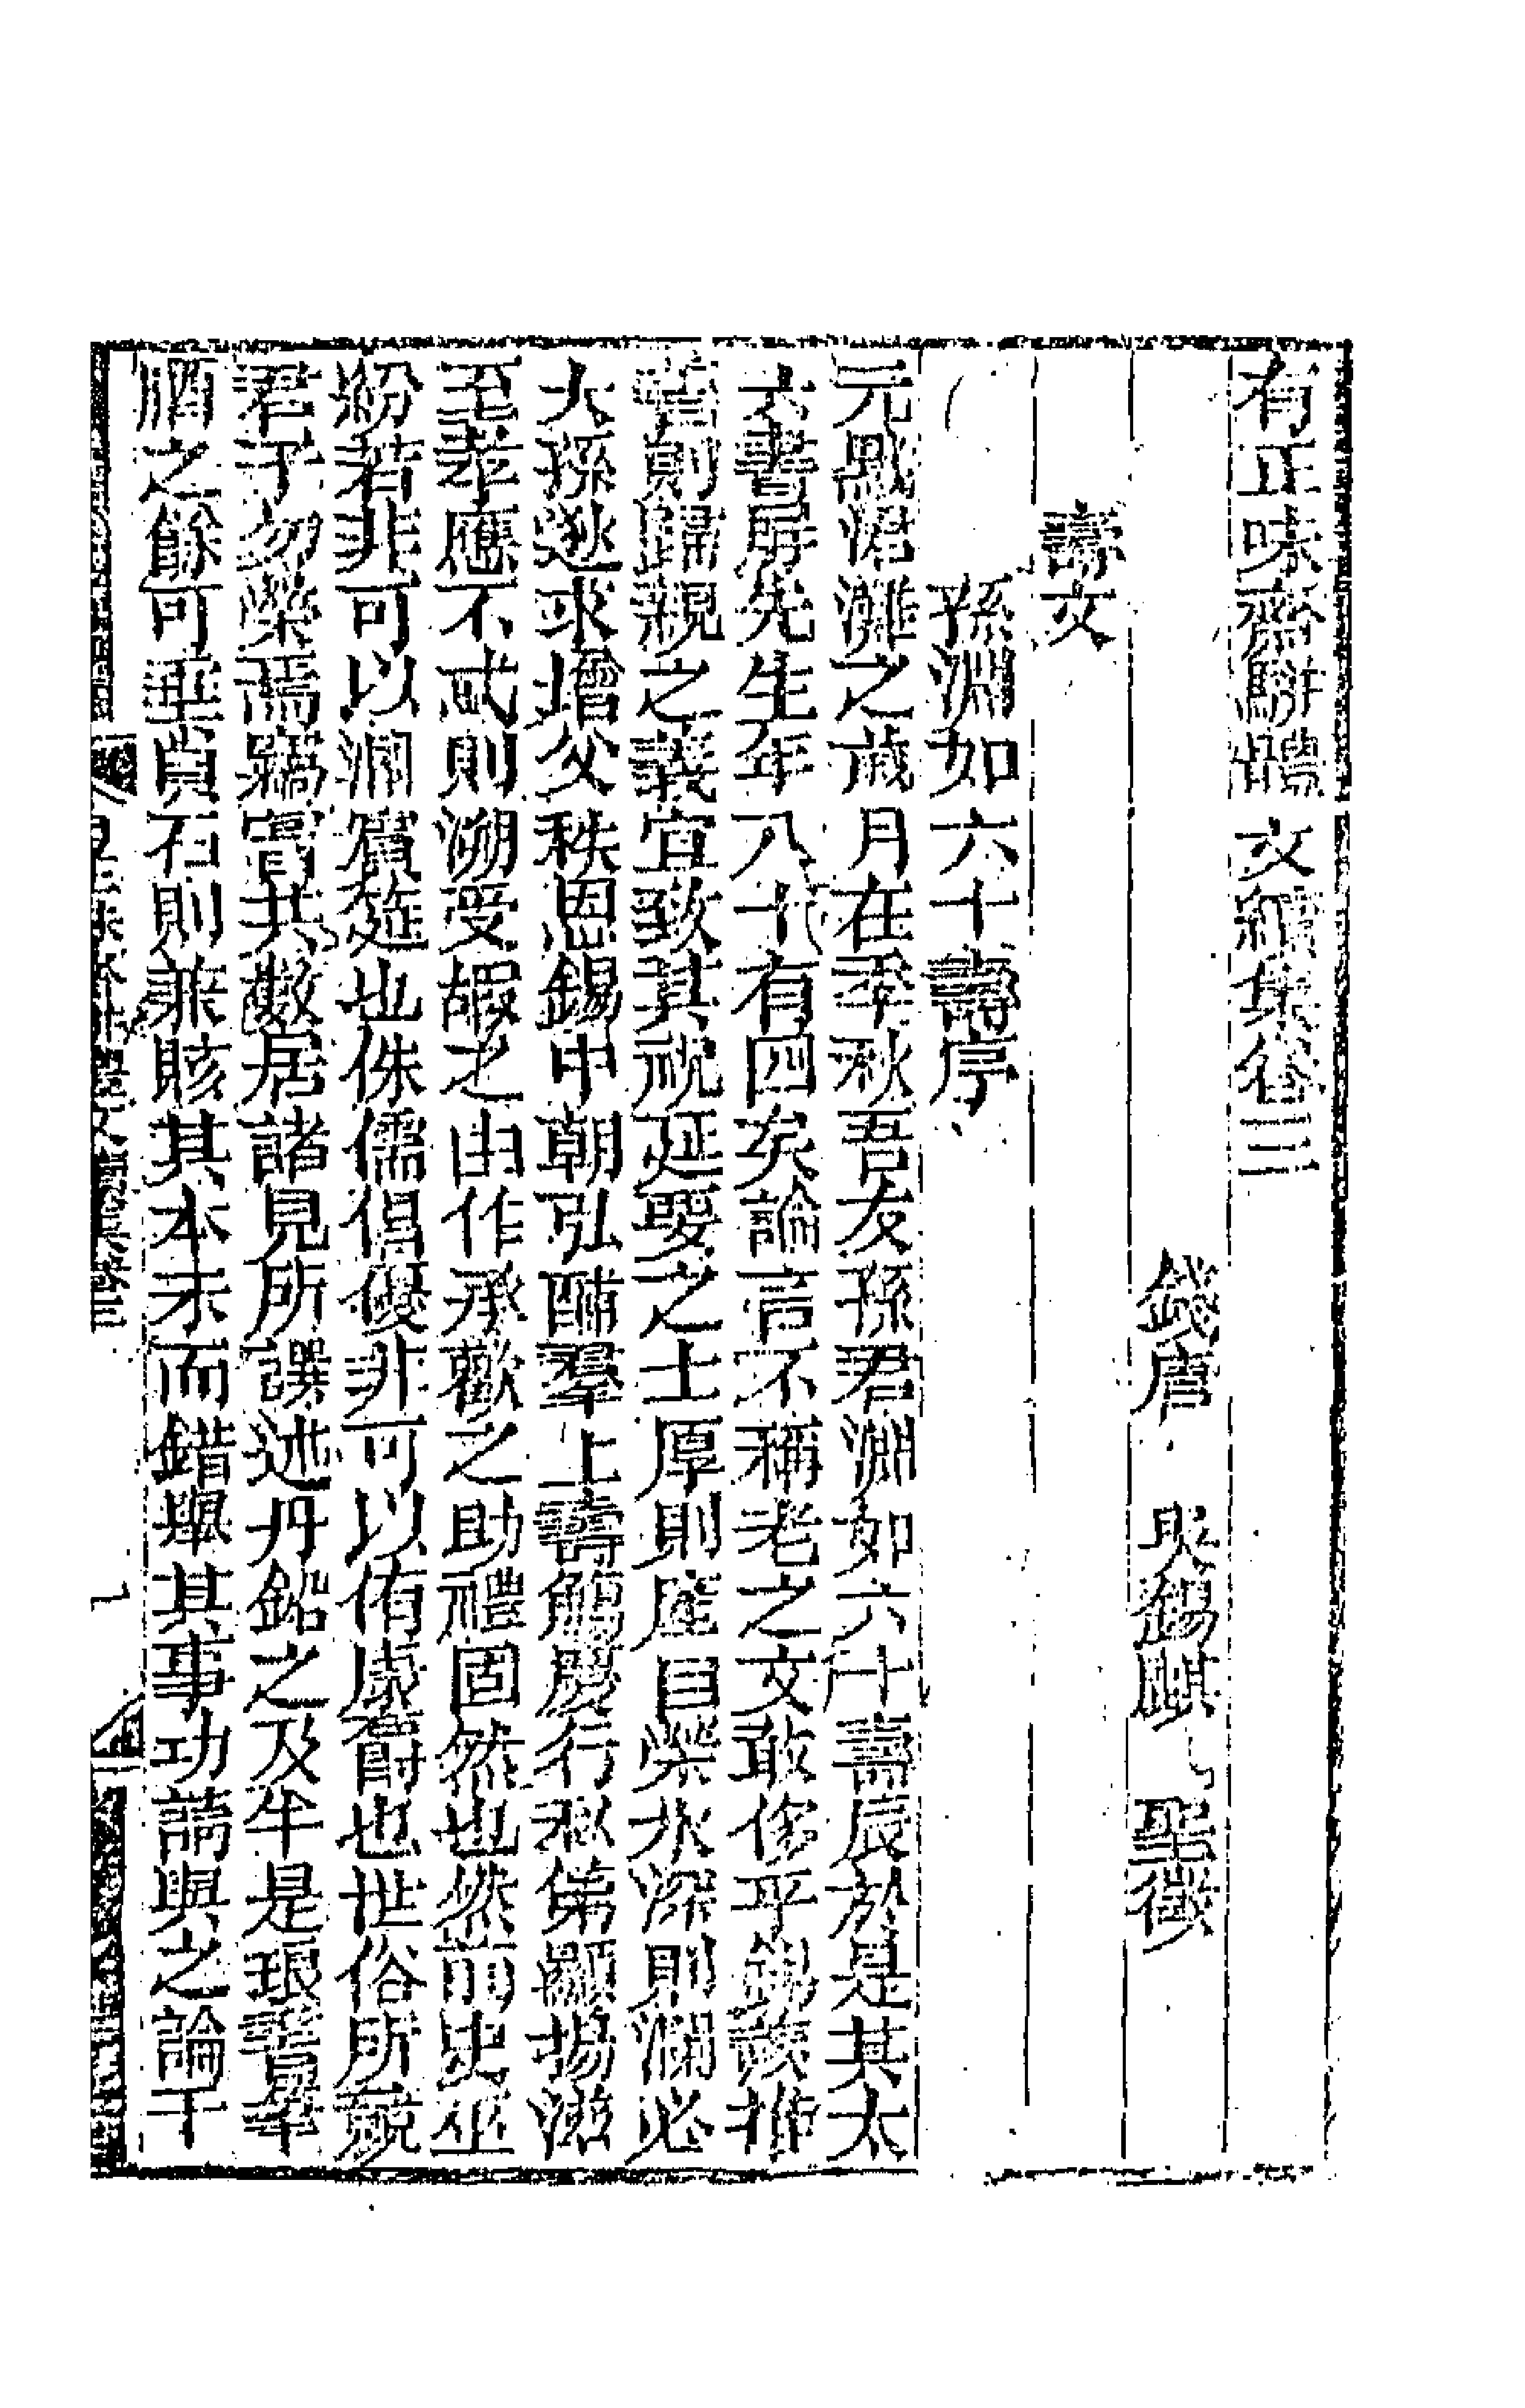 有正味齋駢體文續集卷三
錢唐 吳錫麒 聖徵
壽文
孫淵如六十壽序
元黓涒灘之歲月在季秋吾友孫君淵如六十壽辰於是其太
夫書屏先生年八十有四矣論言不稱老之文敢侈乎錫羨推
耆則歸親之義宜致其祝延婴之士厚則座自榮水深則瀾必
大孫逖求增父秩恩錫中朝弘酺羣上壽觴慶行私第顯揚滋
至孝應不忒則溯受嘏之由作承歡之助禮固然也然前史巫
紛若非可以濶賓筵也侏儒倡優非可以侑康爵也世俗所競
君子勿榮焉竊嘗共數居諸見所譔述丹鉛之及半是琅
酒之餘可垂貞石則兼賅其本末而錯舉其事功請與之論于